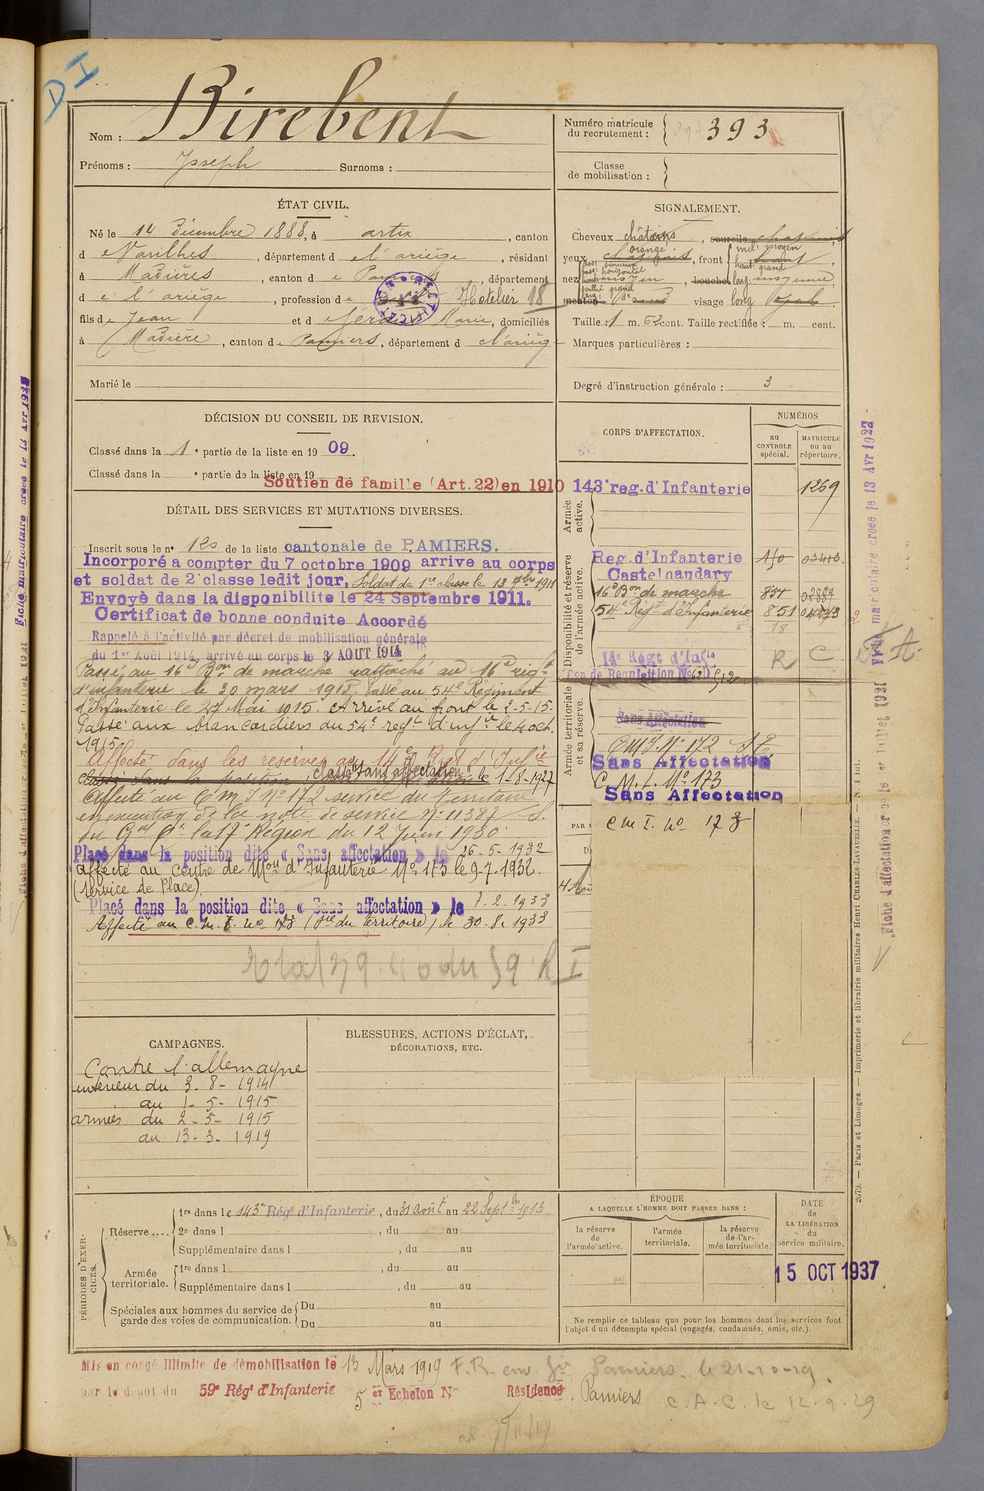 DI
Nom : Birebent
Prénoms : Joseph Surnoms :
Numéro matricule du recrutement : 393
Classe de mobilisation :
ÉTAT CIVIL.
Né le 14 Décembre 1888, à artix, canton
d e Varilhes, département d e l'ariège, résidant
à Madières, canton d e Pamiers, département
d e l'ariège, profession d e Hotelier 18
fils d e Jean et d e Marie, domiciliés
à Madière, canton d e Pamiers, département d e l'ariège
Marié le
SIGNALEMENT.
Cheveux châtains, sourcils chatains
yeux orangé, front moyen
nez moyen, bouche moyenne
menton visage long
Taille : 1 m. 62 cent. Taille rectifiée : m. cent.
Marques particulières :
Degré d'instruction générale : 3
DÉCISION DU CONSEIL DE REVISION.
Classé dans la 1e partie de la liste en 1909.
Classé dans la e partie de la liste en 19
Soutien de famille (Art. 22) en 1910
DÉTAIL DES SERVICES ET MUTATIONS DIVERSES.
Inscrit sous le n° 120 de la liste cantonale de PAMIERS.
Incorporé a compter du 7 octobre 1909 arrive au corps
et soldat de 2e classe ledit jour. Soldat de 1re classe le 13 1911
Envoyé dans la disponibilite le 24 Septembre 1911.
Certificat de bonne conduite Accordé
Rappelé à l'activité par décret de mobilisation générale
du 1er Août 1914, arrivé au corps le 3 AOUT 1914
Passé au 16e Bon de marche rattaché au 16e régt
d'infanterie le 20 mars 1915. Passé au 54e Régiment
d'Infanterie le 27 Mai 1915. Arrivé au front le 2-5-15.
Passé aux brancardiers du 54e regt d'infie le 4 oct.
1915
Affecté dans les réserves au 14e Rgt d'Infie
Classé sans affectation le 1-5-1927
Affecté au C.M.I N° 172 service du territoire
en exécution de la note de service N° 11387
du Gal Ct la 17e Région du 12 Juin 1930
Placé dans la position dite « Sans affectation » le 26-5-1932
affecté au Centre de Mon d'Infanterie N° 173 le 9-7-1932.
(Service de Place).
Placé dans la position dite « Sans affectation » le 7-2-1933
Affecté au C.M.I. N° 173 (Sce du Territoire) le 30-8-1933
CORPS D'AFFECTATION.
NUMÉROS
au CONTROLE spécial.
MATRICULE ou au répertoire.
Armée active.
143e reg. d'Infanterie 1269
Disponibilité et réserve de l'armée active.
Reg. d'Infanterie
Castelnaudary
16e Bon de marche
54e Régt d'Infanterie 851
14e Régt d'Infie R C
Armée territoriale et sa réserve.
Sans Affectation
C.M.I. N° 172
Sans Affectation
C.M.I. N° 173
Sans Affectation
C M I. N° 173
CAMPAGNES.
Contre l'allemagne
intérieur du 3-8-1914
au 1-5-1915
armées du 2-5-1915
au 13-3-1919
BLESSURES, ACTIONS D'ÉCLAT,
DÉCORATIONS, ETC.
PÉRIODES D'EXERCICES.
Réserve .... 1re dans l e 143e Régt d'Infanterie, du 31 août au 22 Septbre 1913.
2e dans l , du au
Supplémentaire dans l , du au
Armée territoriale. 1re dans l , du au
Supplémentaire dans l , du au
Spéciales aux hommes du service de garde des voies de communication. Du au
Du au
ÉPOQUE
A LAQUELLE L'HOMME DOIT PASSER DANS :
la réserve de l'armée active.
l'armée territoriale.
la réserve de l'armée territoriale.
DATE de LA LIBÉRATION du service militaire.
15 OCT 1937
Ne remplir ce tableau que pour les hommes dont les services font
l'objet d'un décompte spécial (engagés, condamnés, omis, etc.).
Mis en congé illimité de démobilisation le 13 Mars 1919 F.R. env. Pamiers le 21-10-19.
par le dépot du 59e Régt d'Infanterie 5 er Echelon N° Résidence Pamiers C.A.C. le 12.9.29
Fiche matriculaire créée le 13 Avr 1922
2579. — Paris et Limoges. — Imprimerie et librairie militaires Henri CHARLES-LAVAUZELLE.